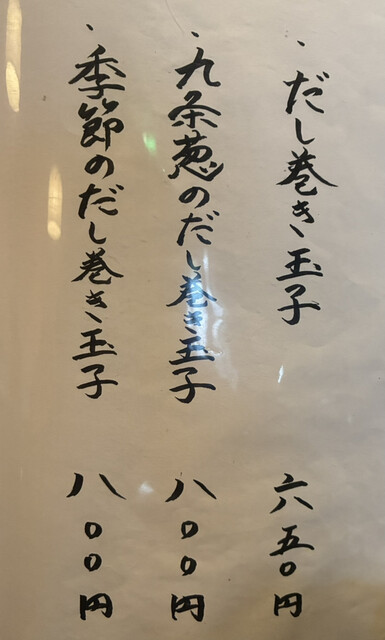 、だし巻き玉子 六五〇円
、九条葱のだし巻き玉子 八〇〇円
、季節のだし巻き玉子 八〇〇円